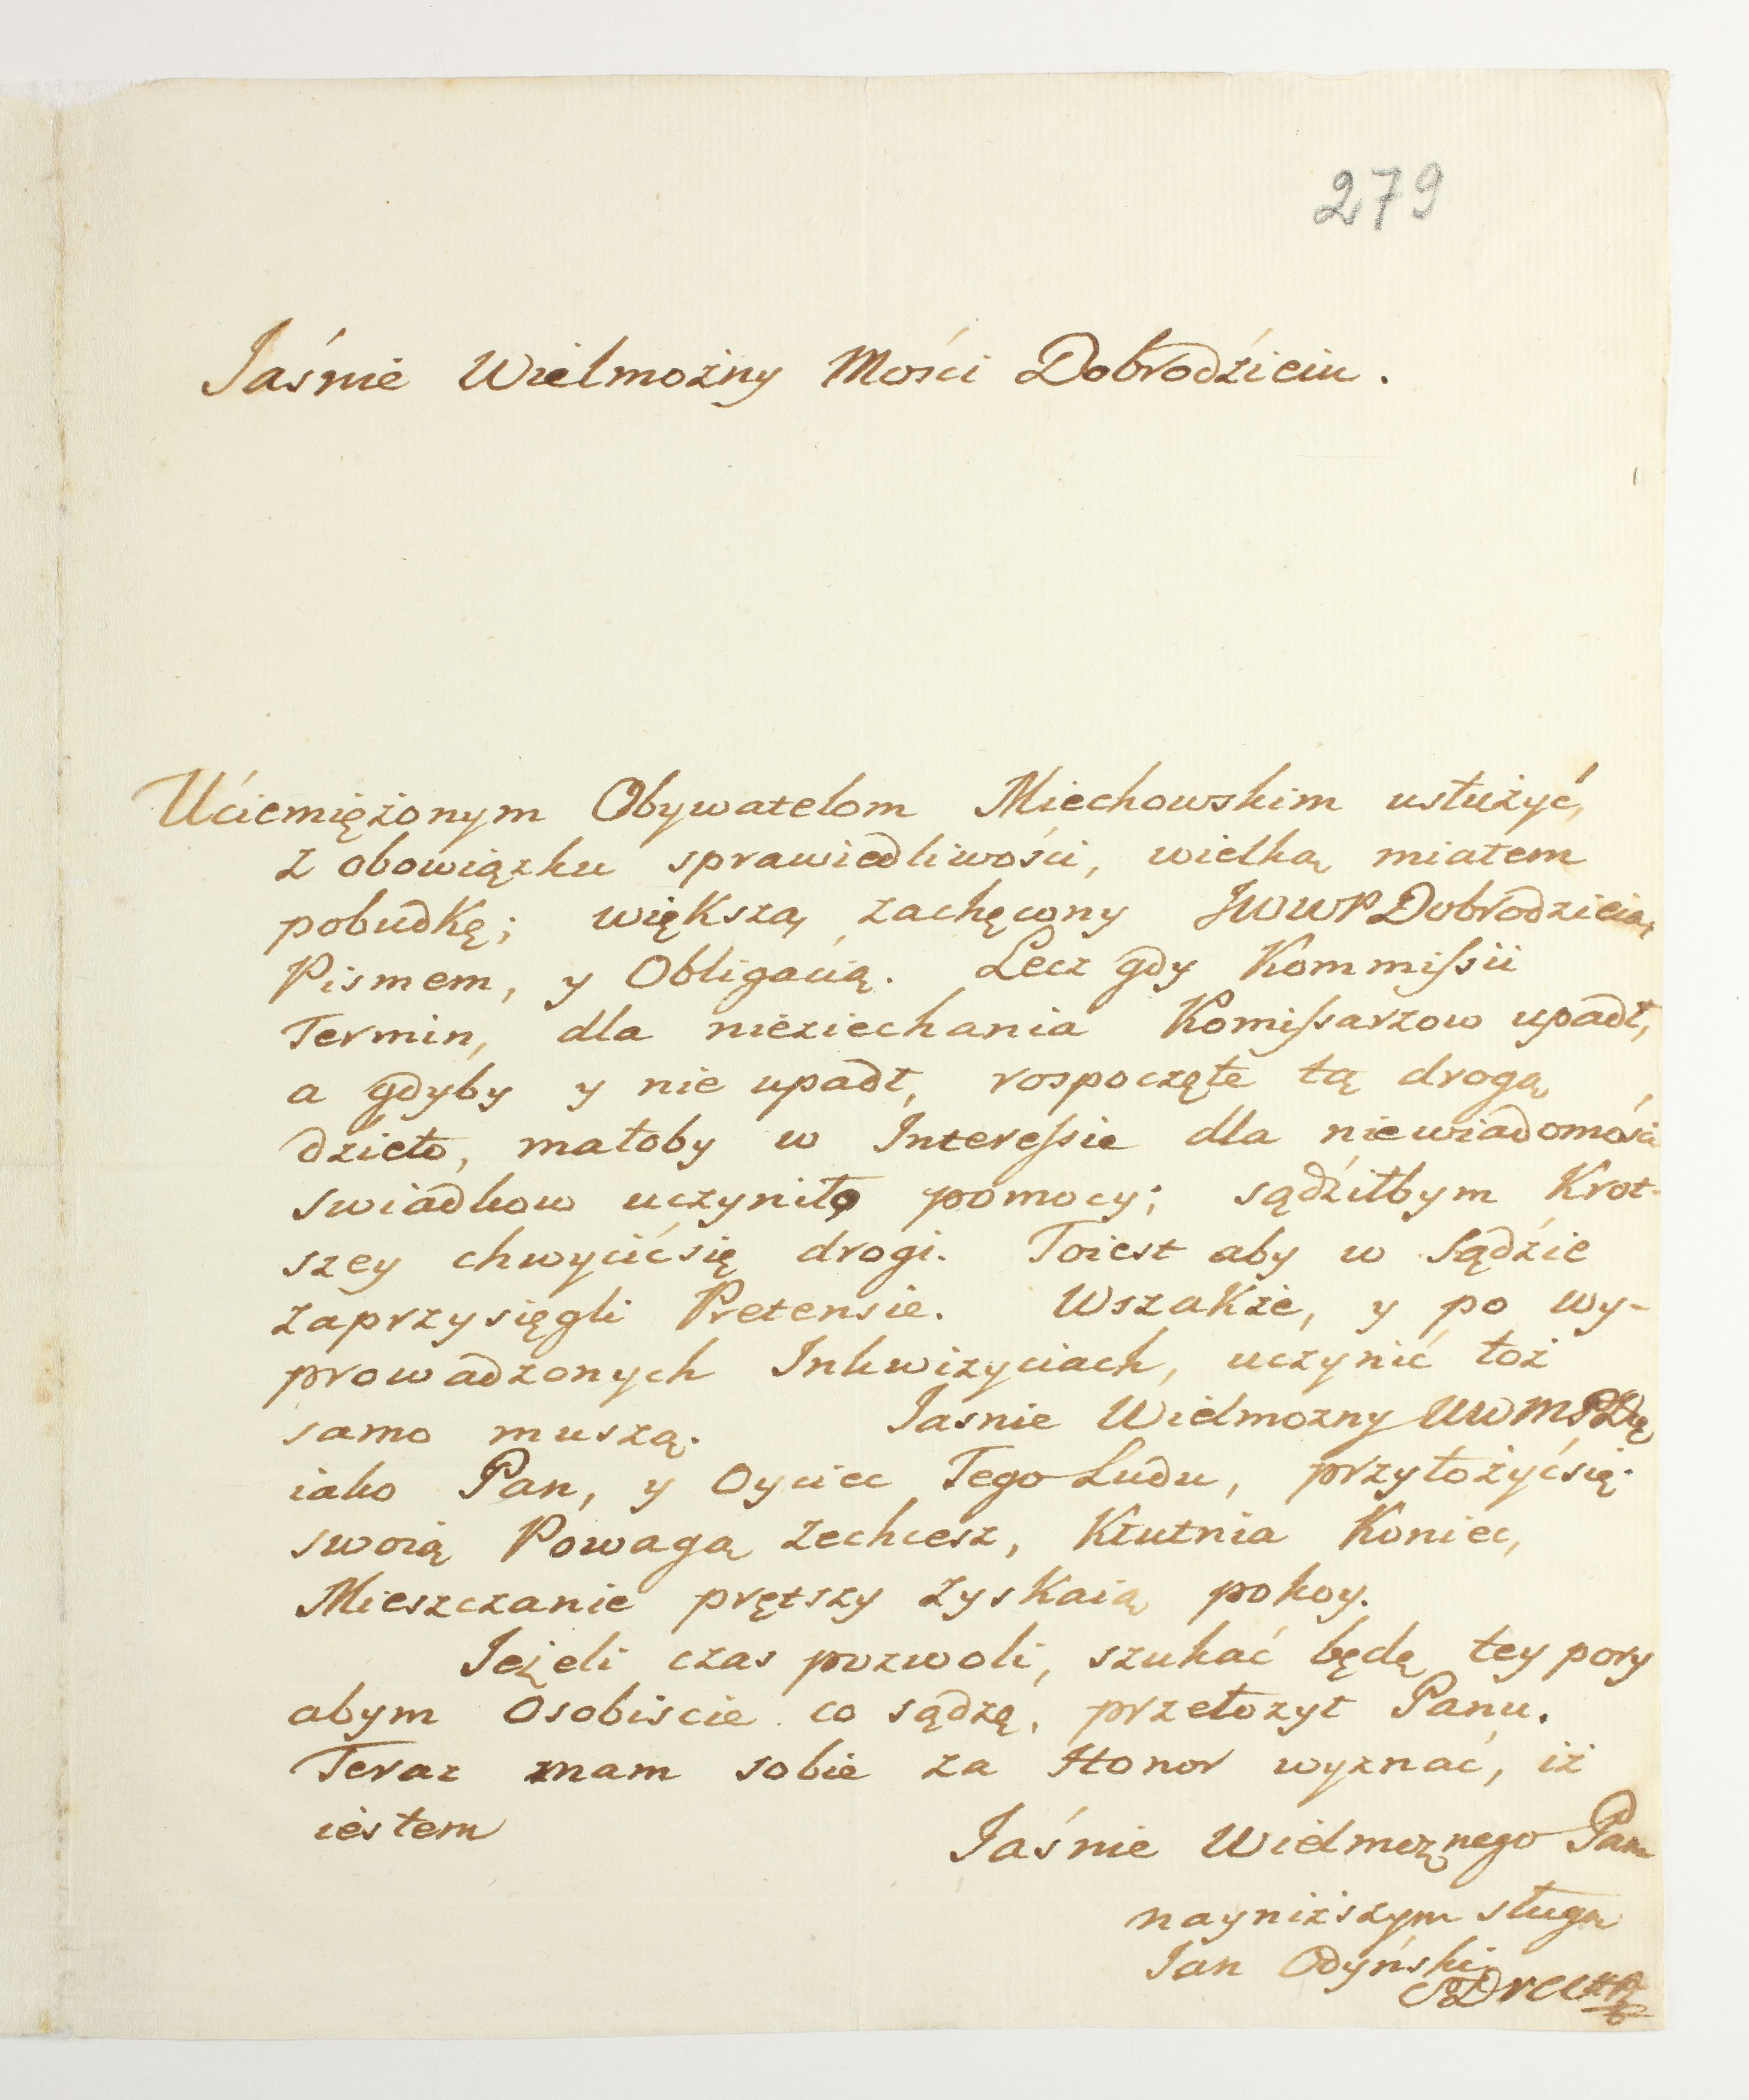 279
Jaśnie Wielmożny Mości Dobrodźieiu.
Ućiemiężonym Obywatelom Miechowskim usłużyć,
z obowiązku sprawiedliwości, wielką miałem
pobudkę; większą, zachęcony JWWP Dobrodzieia,
Pismem, y Obligacią. Lecz gdy Kommissii
Termin, dla nieziechania Komissarzow upadł,
a gdyby y nie upadł, rospoczęte tą drogą
dzieło, małoby w Interessie dla niewiadomości
swiadkow uczyniło pomocy; sądźiłbym Krot-
szey chwycićsię drogi. Toiest aby w Sądźie
zaprzysięgli Pretensie. Wszakże, y po wy-
prowadzonych Inkwizyciach, uczynić toż
samo muszą. Jasnie Wielmozny
iako Pan, y Oyciec Tego Ludu, przyłożyćsię
swoią Powagą zechcesz, Kłutnia Koniec,
Mieszczanie prętszy zyskaią pokoy.
Jeżeli czas pozwoli, szukać będę tey pory
abym Osobiscie co sądzę, przełozył Panu.
Teraz mam sobie za Honor wyznać, iż
iestem
Jaśnie Wielmożnego Pana
nayniższym sługą
Jan Odyński